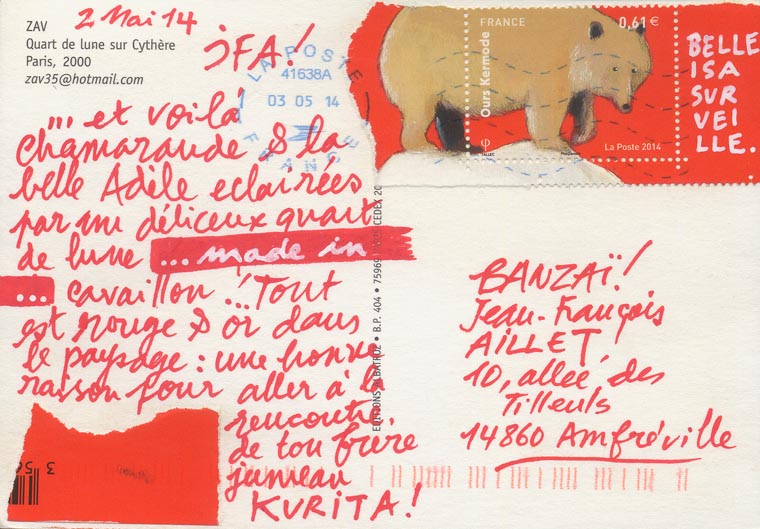 ZAV
Quart de lune sur Cythère
Paris, 2000
zav35@hotmail.com
2 Mai 14
JFA!
LA POSTE
41638A
03 05 14
FRANCE
FRANCE
0,61 €
Ours Kermode
La Poste 2014
BELLE
ISA
SUR
VEI
LLE.
... et voilà
Chamarande & la
belle Adèle eclairées
par un déliceux quart
de lune ... made in
... cavaillon ! Tout
est rouge & or dans
le paysage : une bonne
raison pour aller à la
rencontre
de ton frère
jumeau
KURITA!
B.P. 404 • 75969 CEDEX 20
BANZAÏ!
Jean-François
AILLET!
10, allée des
Tilleuls
14860 Amfréville